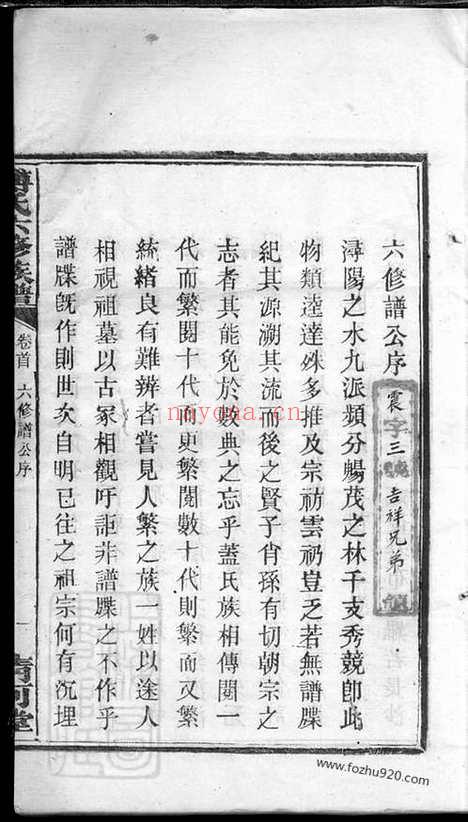 六修譜公序
震字三號吉祥兄弟
潯陽之水九派類分暢茂之林千支秀競卽此
物類達達殊多推及宗祊雲礽豈乏若無譜牒
紀其源溯其流而後之賢子肖孫有切朝宗之
志者其能免於數典之忘乎蓋氏族相傳閱一
代而繁閱十代而更繁閱數十代則繁而又繁
統緒良有難辨者嘗見人繁之族一姓以途人
相視祖墓以古冢相觀吁詎非譜牒之不作乎
譜牒旣作則世次自明已往之祖宗何有沉埋
氏六修族譜
卷首
六修譜公序
一
清河堂
nayona.cn
www.fozhu920.com